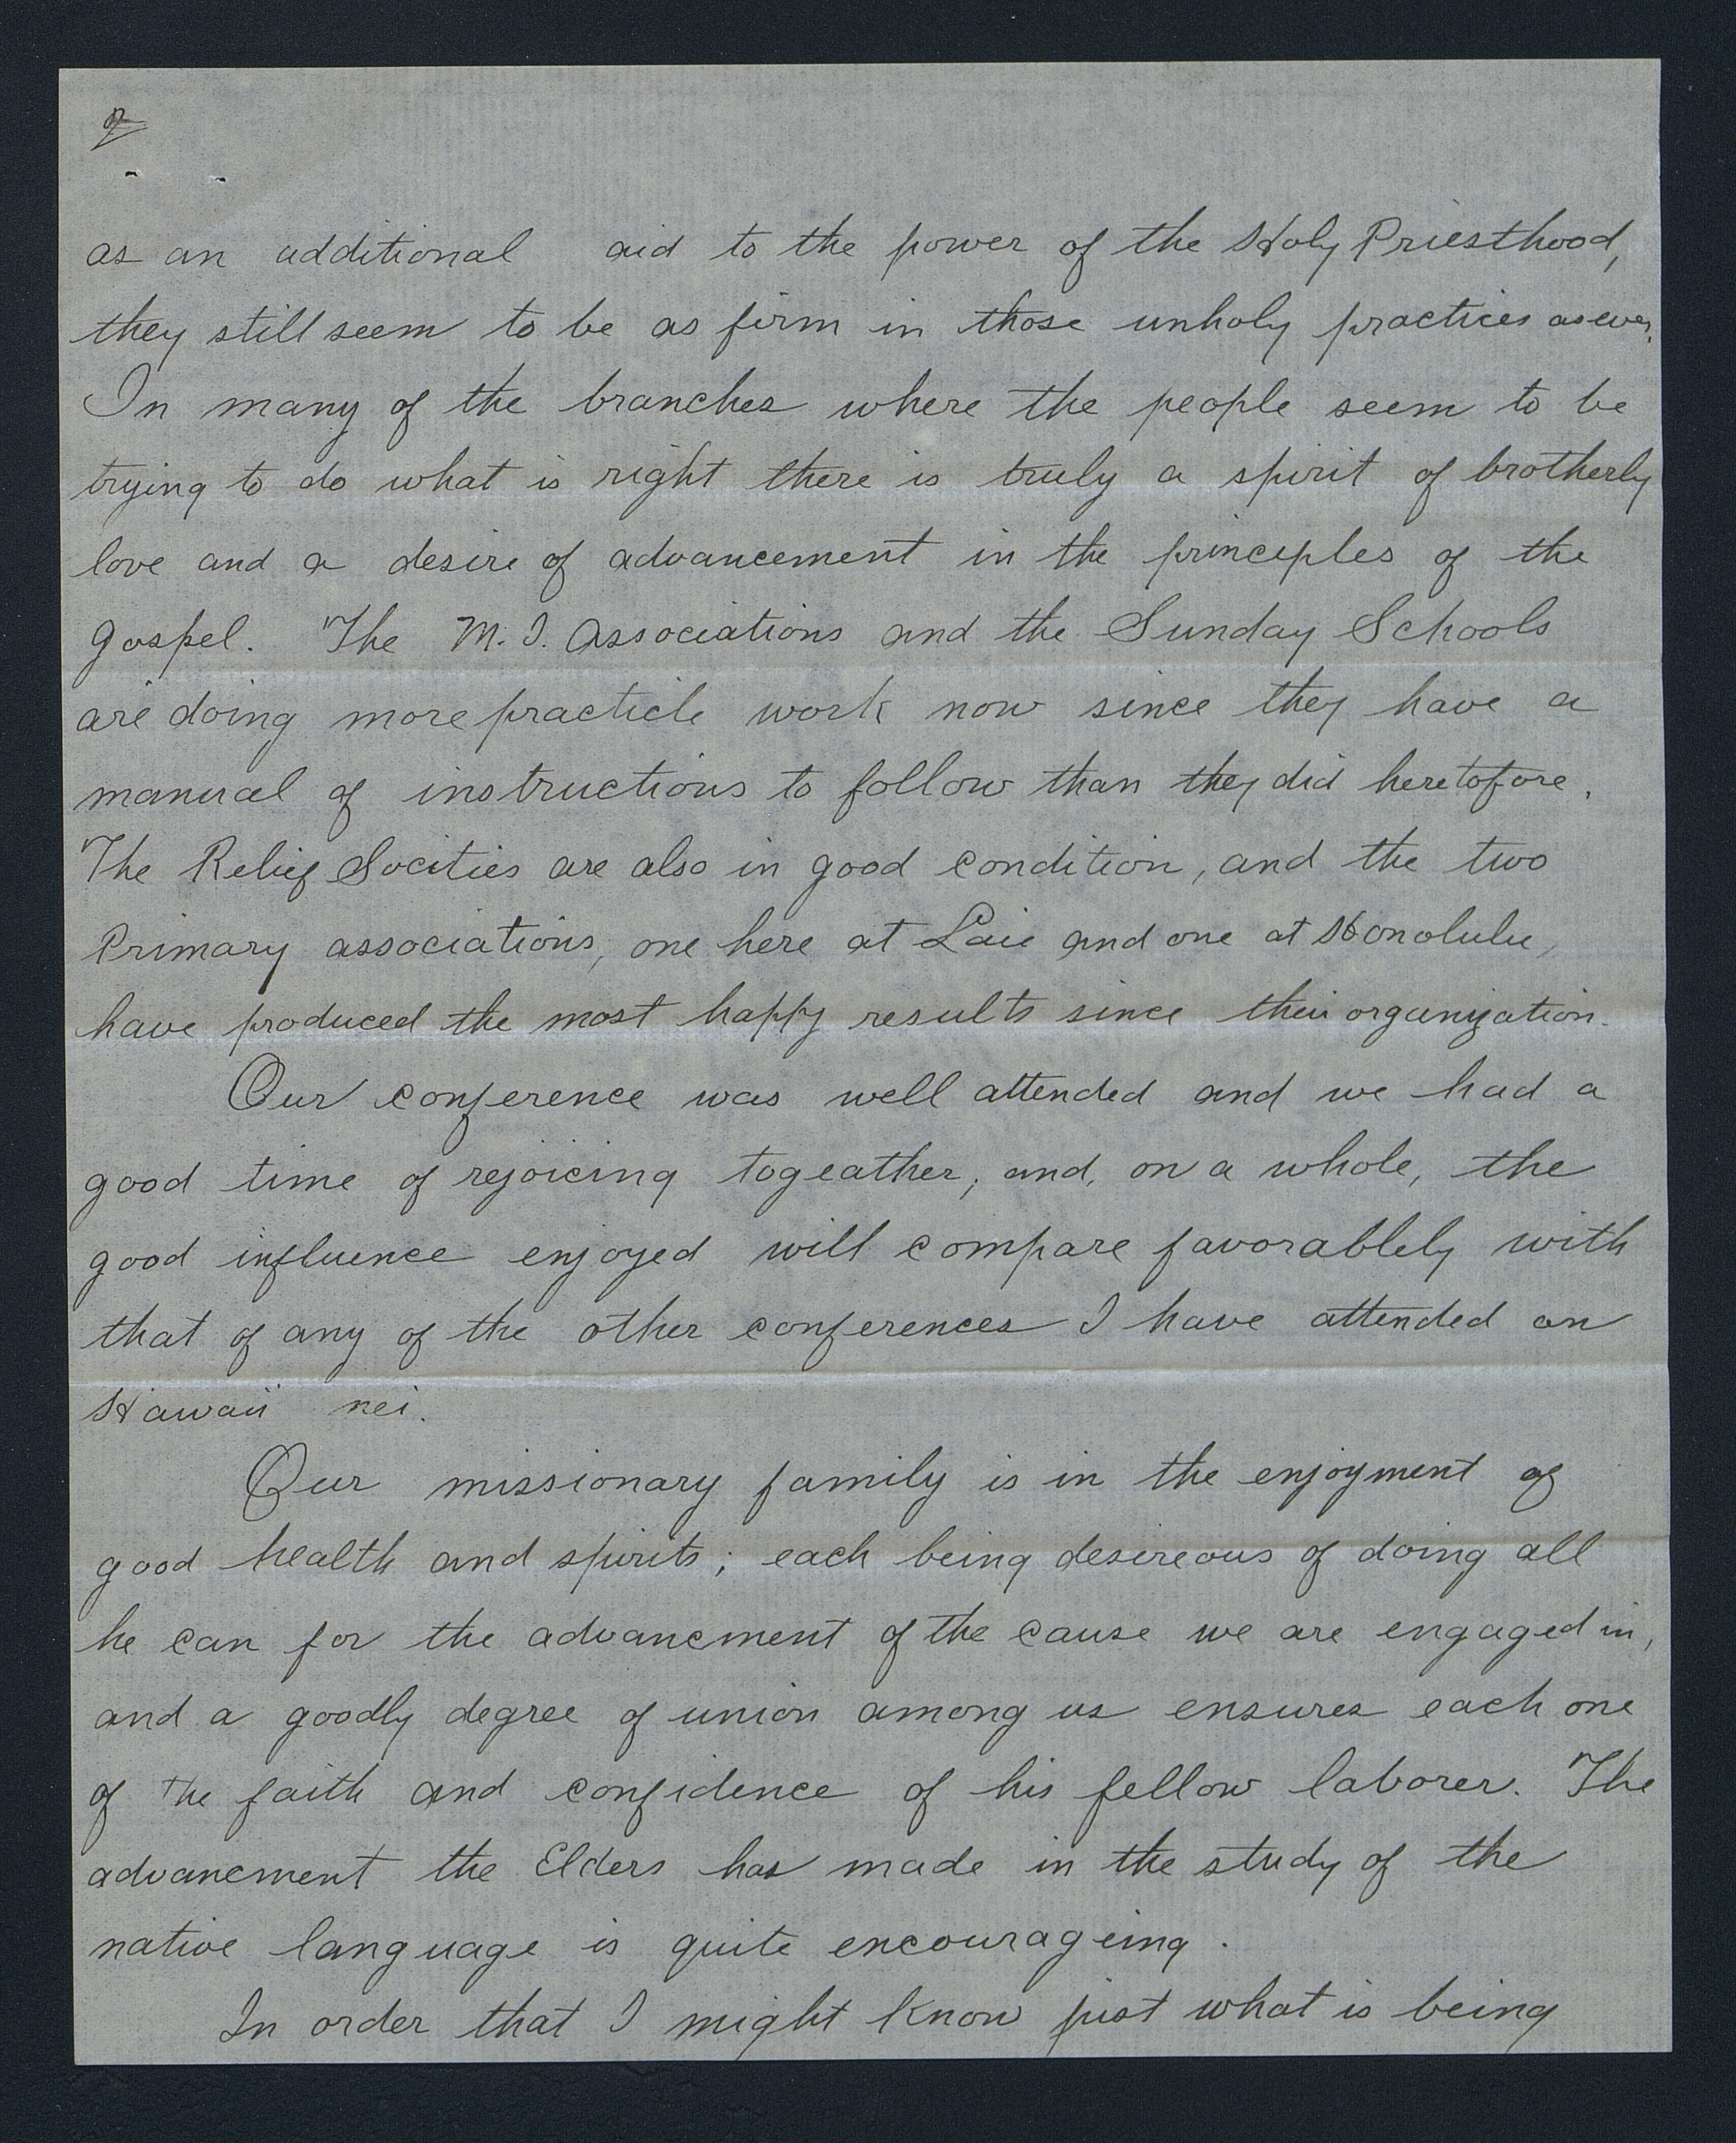 2
as an additional aid to the power of the Holy Priesthood,
they still seem to be as firm in those unholy practices as ever.
In many of the branches where the people seem to be
trying to do what is right there is truly a spirit of brotherly
love and a desire of advancement in the principles of the
gospel. The M. I. Associations and the Sunday Schools
are doing more practicle work now since they have a
manual of instructions to follow than they did heretofore.
The Relief Socities are also in good condition, and the two
Primary associations, one here at Laie and one at Honolulu,
have produced the most happy results since their organization.
Our conference was well attended and we had a
good time of rejoicing togeather; and, on a whole, the
good influence enjoyed will compare favorablely with
that of any of the other conferences I have attended on
Hawaii nei.
Our missionary family is in the enjoyment of
good health and spirits; each being desireous of doing all
he can for the advancment of the cause we are engaged in,
and a goodly degree of union among us ensures each one
of the faith and confidence of his fellow laborer. The
advancment the Elders has made in the study of the
native language is quite encourageing.
In order that I might know just what is being